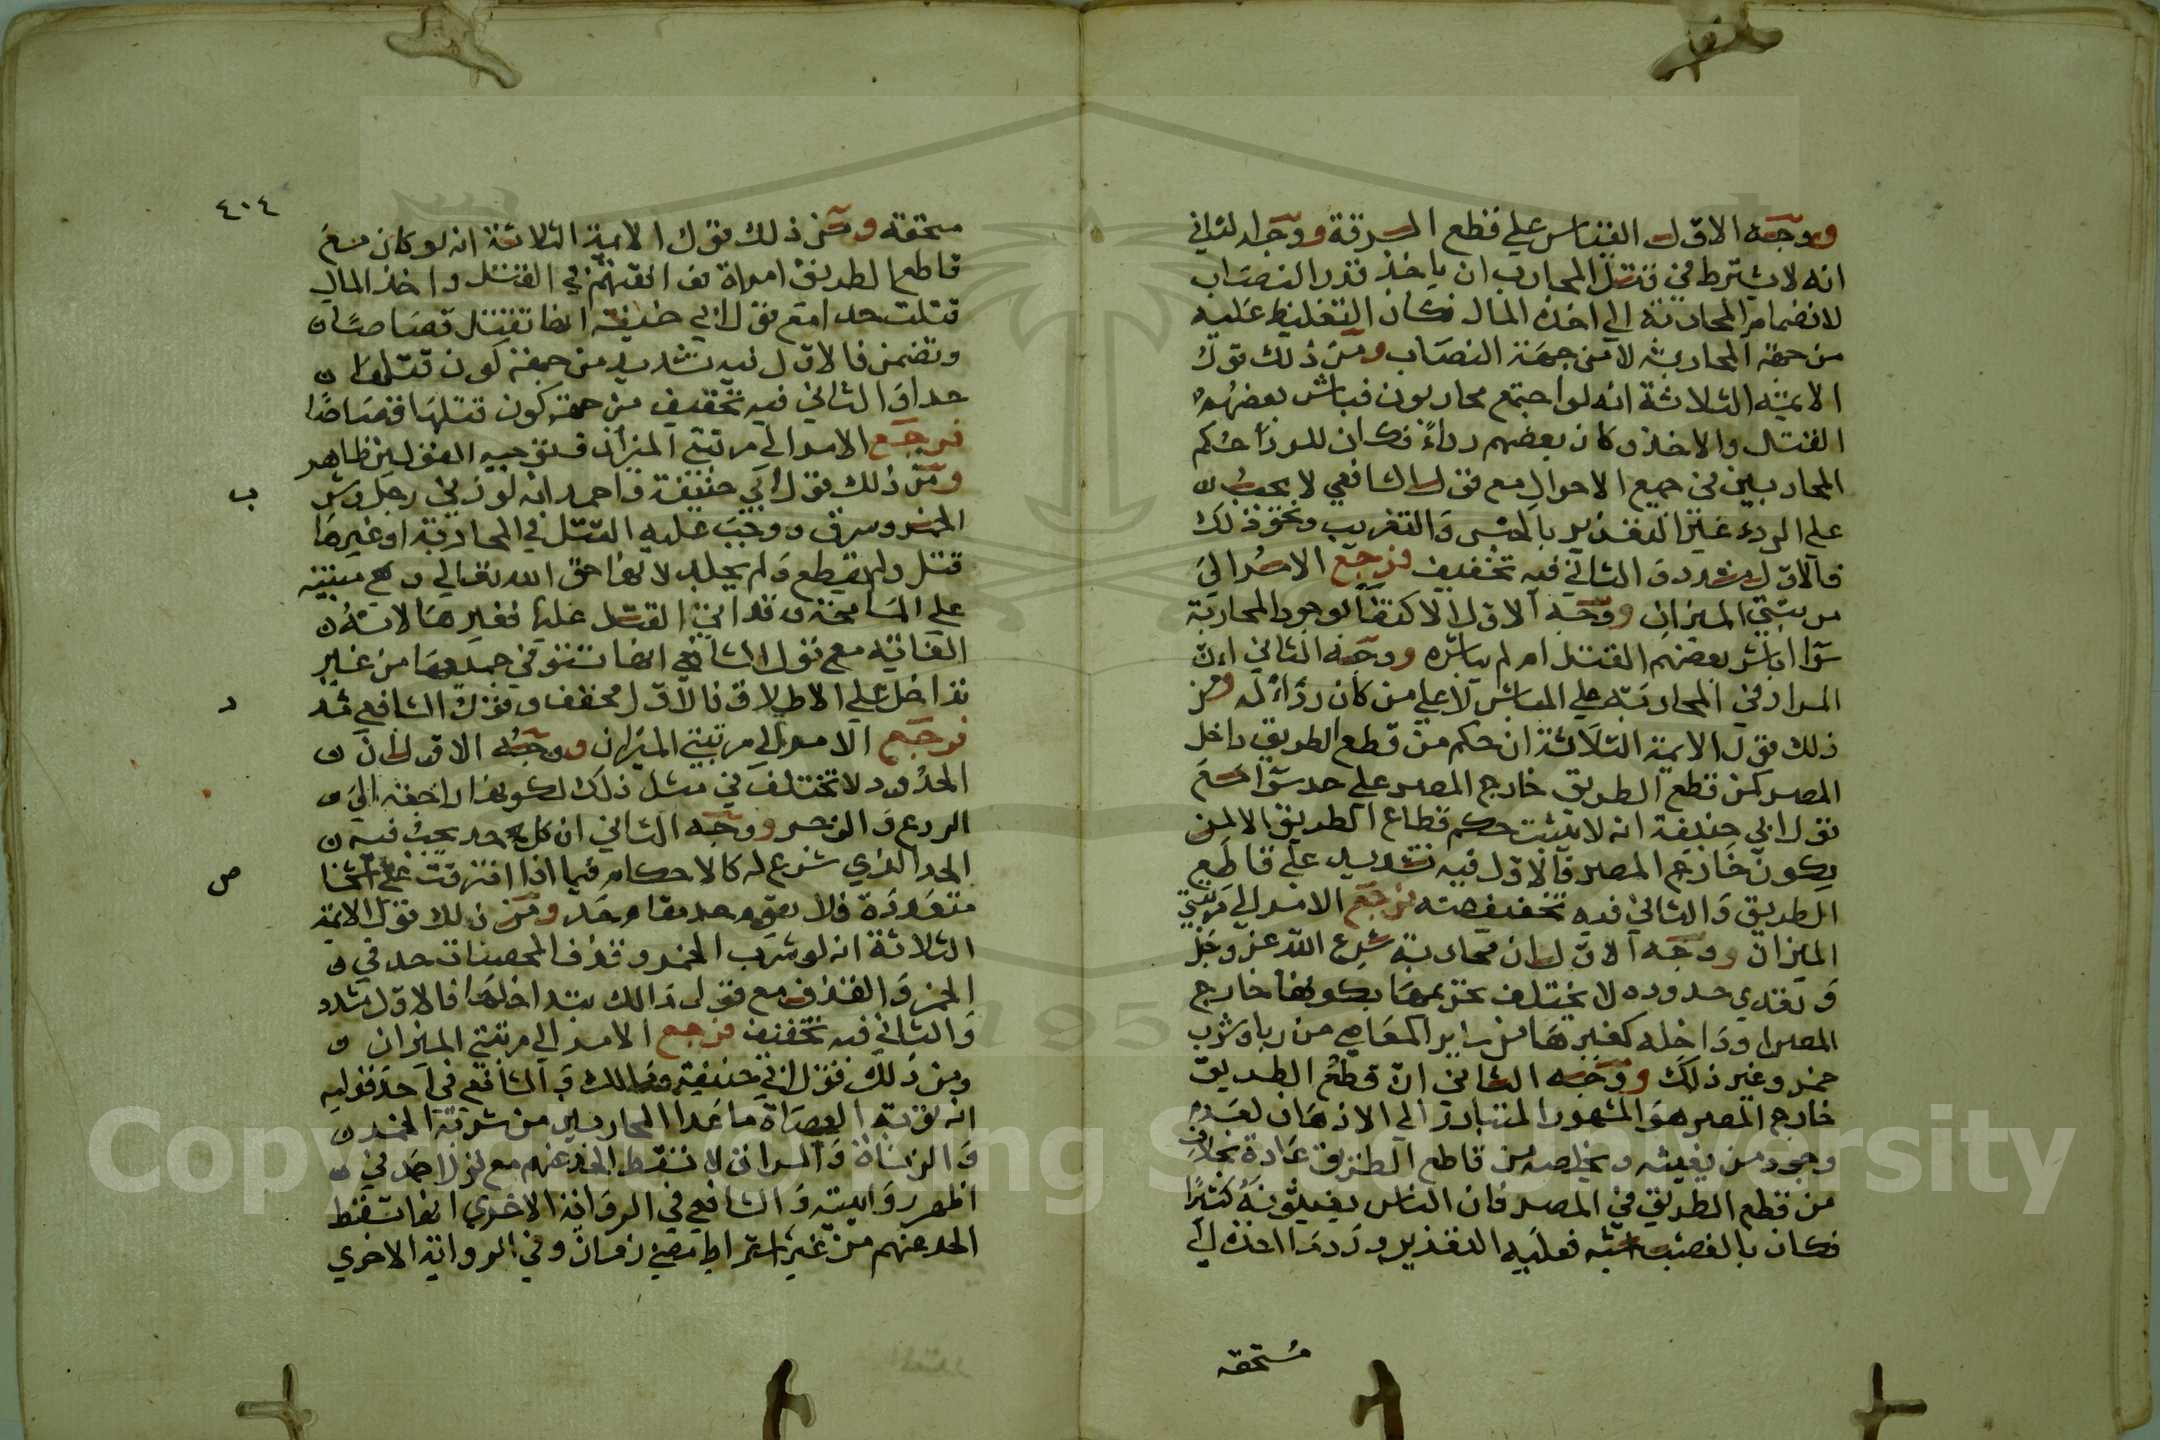 ووجه الاول القياس علي قطع السرقة ووجه الثاني
انه لا يشترط في قتل المحارب ان ياخذ قدر النصاب
لانضمام المحاربة الي اخذه المال فكان التغليظ عليه
من جهة المحاربة لا من جهة النصاب ومن ذلك قول
الايمة الثلاثة انه لو اجتمع محاربون فباشر بعضهم
القتال والاخذ وكان بعضهم ردءً فكان للردأ حكم
المحاربين في جميع الاحوال مع قول الشافعي لا يجب
علي الردء غير التعذير بالحبس والتغريب ونحو ذلك
فالاول مشدد والثاني فيه تخفيف فرجع الامر الي
مرتبتي الميزان ووجه الاول الاكتفا لوجود المحاربة
سوا اباشر بعضهم القتل ام لم يباشره ووجه الثاني ان
المدار في المحاربة علي المباشر لا علي من كان ردءا له ومن
ذلك قول الايمة الثلاثة ان حكم من قطع الطريق داخل
المصر كمن قطع الطريق خارج المصر علي حد سوا مع
قول ابي حنيفة انه لا يثبت حكم قطاع الطريق الا لمن
يكون خارج المصر فالاول فيه تشديد علي قاطع
الطريق والثاني فيه تخفيف عنه فرجع الامر الي مرتبتي
الميزان ووجه الاول ان محاربة شرع الله عز وجل
وتعدي حدوده لا يختلف تحريمها بكونها خارج
المصر او داخله كغيرها من ساير المعاصي من ربا وشرب
خمر وغير ذلك ووجه الثاني ان قطع الطريق
خارج المصر هو المشهور المتبادر الي الاذهان لعدم
وجود من يغيثه ويخلصه من قاطع الطريق عادة بخلاف
من قطع الطريق في المصر فان الناس يغيثونه كثيرًا
فكان بالغصب اشبه فعليه التعذير ورد ما اخذه الي
مستحقه
٤٠٤
مستحقه ومن ذلك قول الايمة الثلاثة انه لو كان مع
قاطع الطريق امراة فوافقتهم في القتل واخذ المال
قتلت حدا مع قول ابي حنيفة انها تقتل قصاصًا
وتضمن فالاول فيه تشديد من جهة كون قتلها
حدا والثاني فيه تخفيف من جهة كون قتلها قصاصًا
فرجع الامر الي مرتبتي الميزان فتوجيه القولين ظاهر
ومن ذلك قول ابي حنيفة واحمد انه لو زني رجل وشرب
الخمر وسرق ووجب عليه القتل في المحاربة او غيرها
قتل ولم يقطع ولم يجلد لانها حق الله تعالي وهي مبنية
علي المسامحة وقد اتي القتل عليها فغيرها لانه
الغاية مع قول الشافعي انها تستوفي جميعها من غير
تداخل علي الاطلاق فالاول مخفف وقول الشافعي مشدد
فرجع الامر الي مرتبتي الميزان ووجه الاول ان
الحدود لا تختلف في مثل ذلك لكونها راجعة الي
الردع والزجر ووجه الثاني ان كل حد يجب فيه
الحد الذي شرع له كالاحكام فيما اذا افترقت علي اشخاص
متعددة فلا يقوم حد مقام حد ومن ذلك قول الايمة
الثلاثة انه لو شرب الخمر وقذف المحصنات حد في
الخمر والقذف مع قول مالك بتداخلها فالاول مشدد
والثاني فيه تخفيف فرجع الامر الي مرتبتي الميزان
ومن ذلك قول ابي حنيفة ومالك والشافعي في احد قوليه
ان توبة العصاة ما عدا المحاربين من شربة الخمر
والزناة والسراق لا تسقط الحد عنهم مع قول احمد في
اظهر روايتيه والشافعي في الرواية الاخري انها تسقط
الحد عنهم من غير اشتراط مضي زمان وفي الرواية الاخري
ب
د
ص